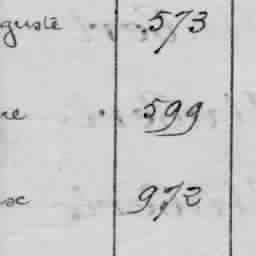 guste 573
re 599
x 972